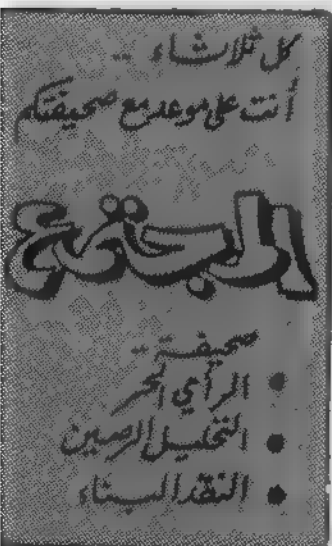 كل ثلاثاء ..
أنت على موعد مع صحيفتكم
المجتمع
صحيفة ..
• الرأي الحر
• التحليل الرصين
• النقد البناء